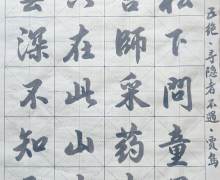 五绝·寻隐者不遇·贾岛
松下問童
師采药
在此山
雲深不知